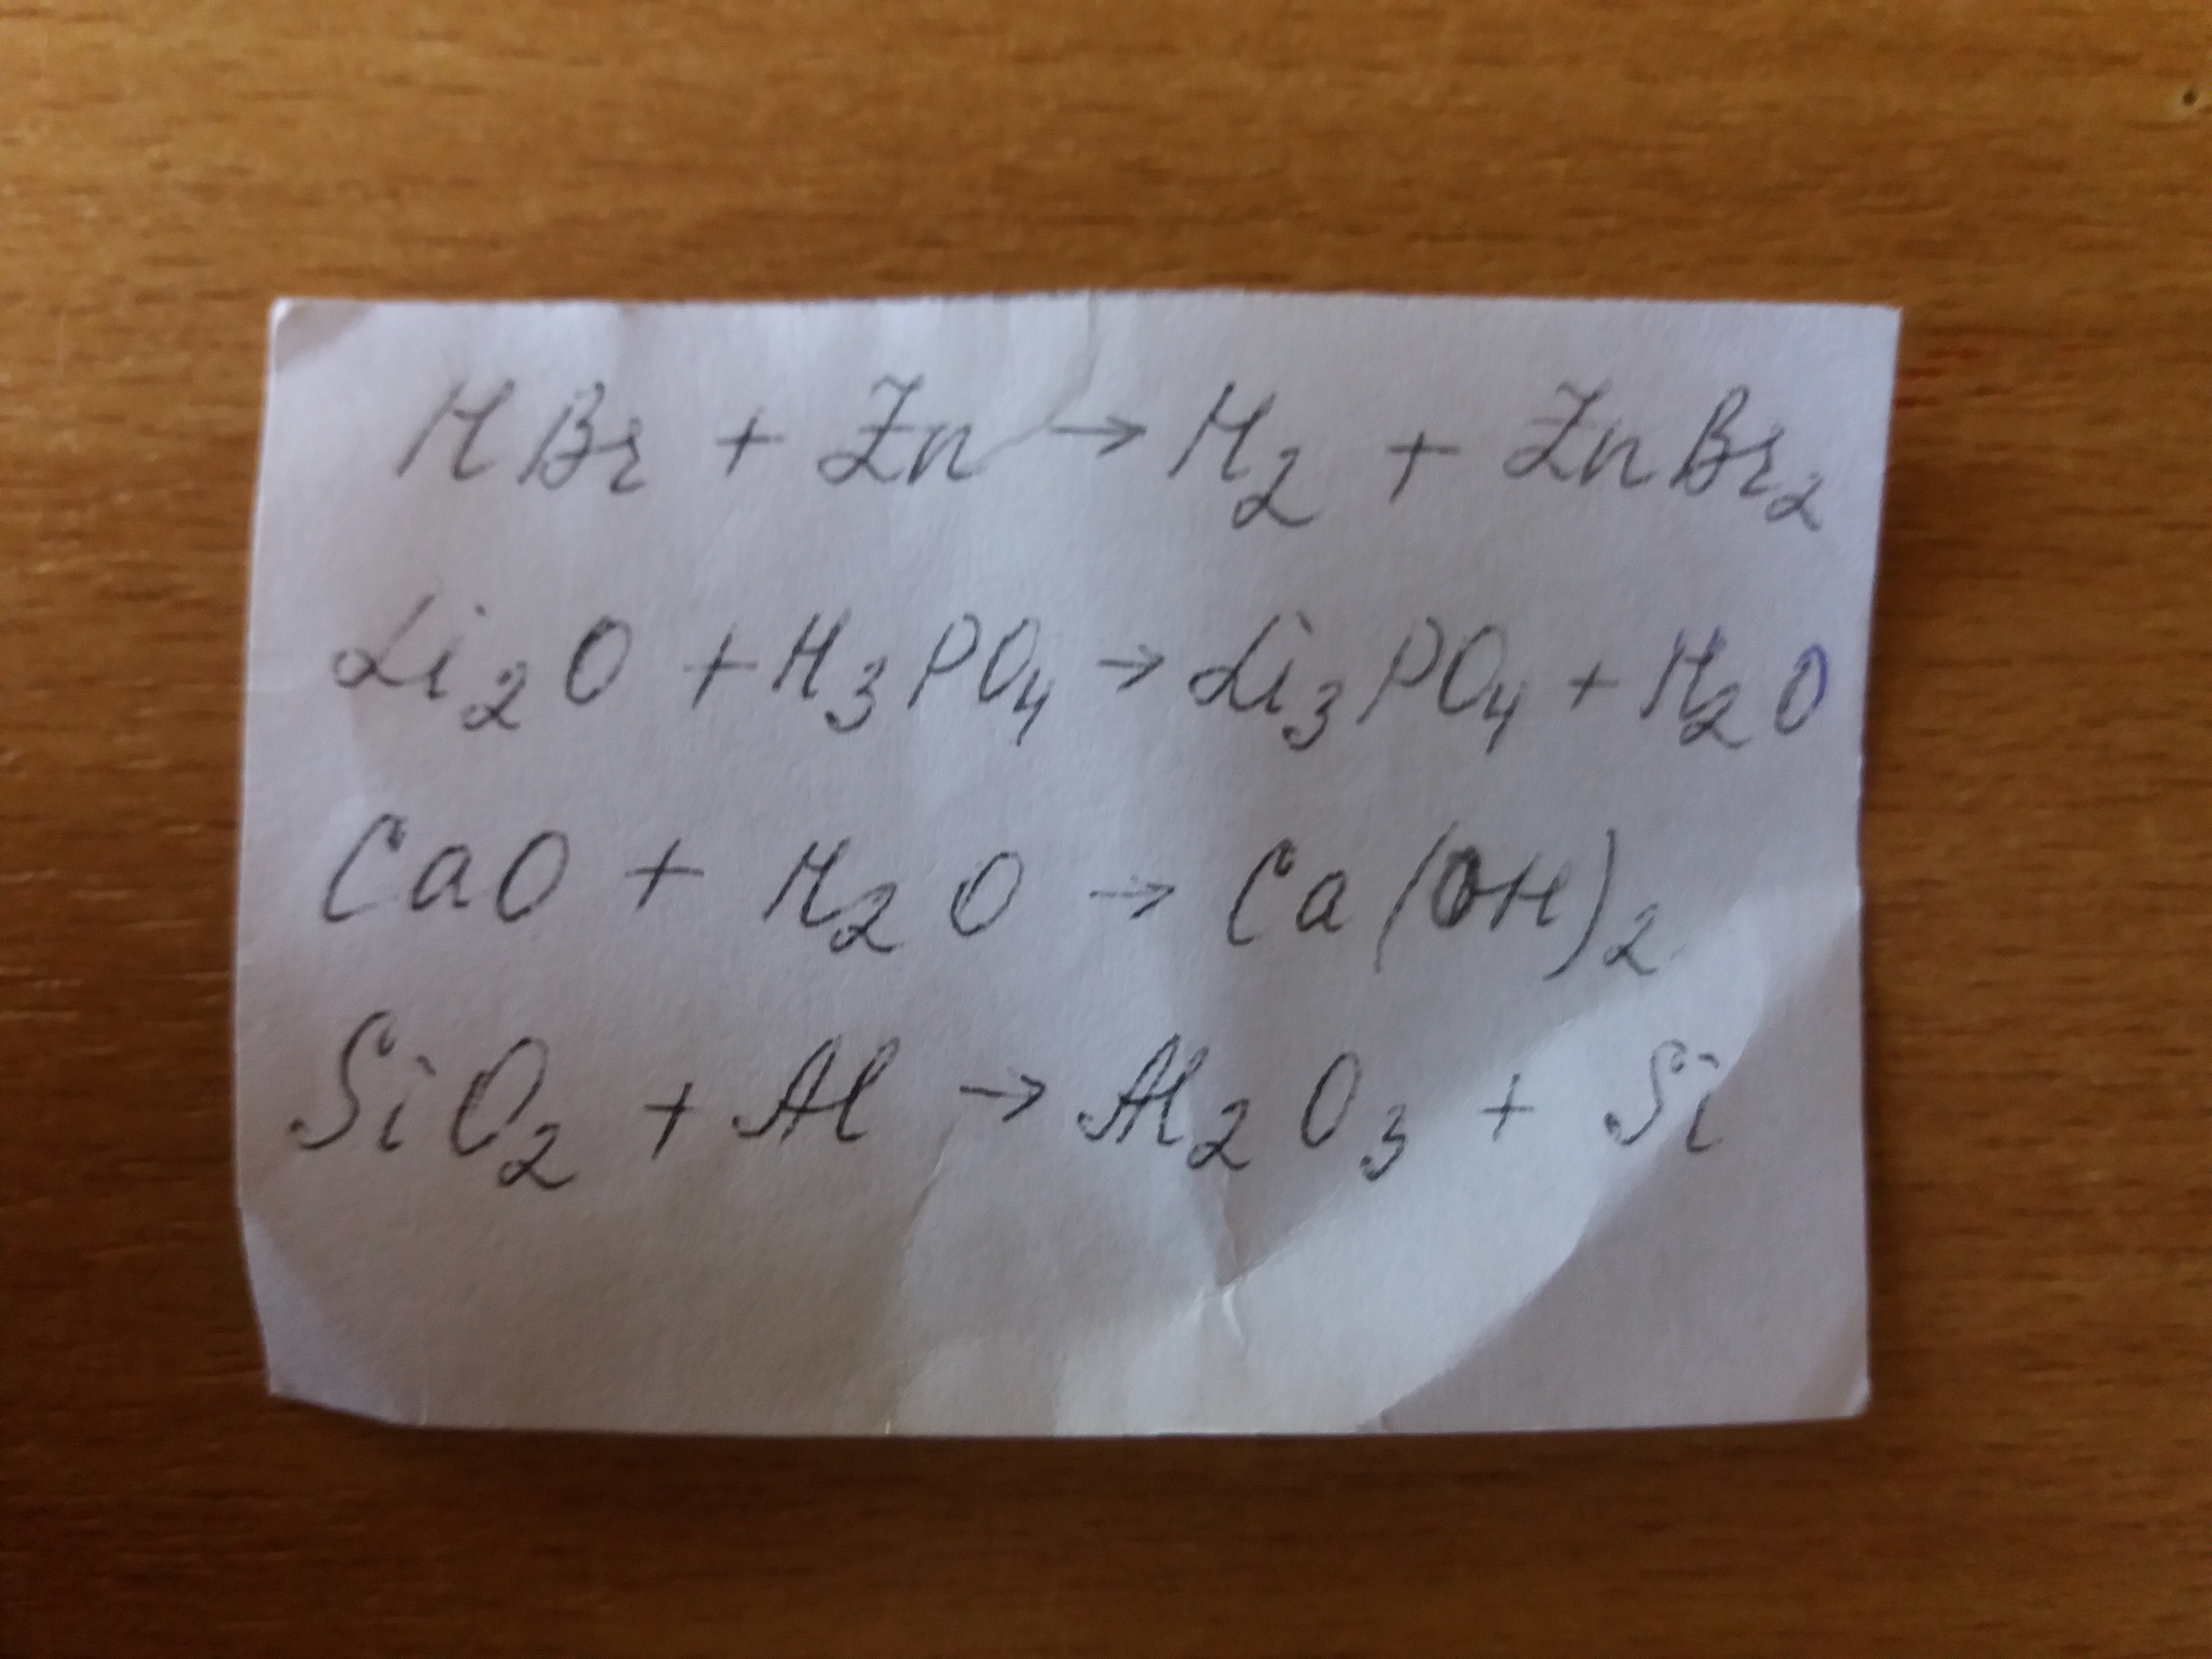 HBr + Zn → H₂ + ZnBr₂
Li₂O + H₃PO₄ → Li₃PO₄ + H₂O
CaO + H₂O → Ca(OH)₂
SiO₂ + Al → Al₂O₃ + Si